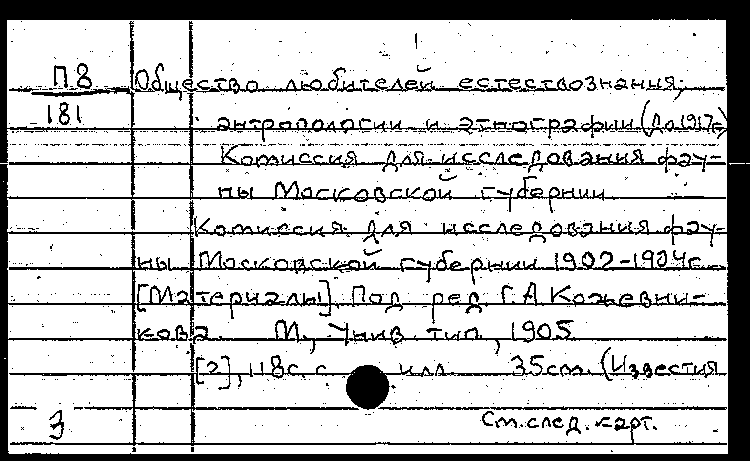 П8
181
Общество любителей естествознания,
антропологии и этнографии (До 1917г.)
Комиссия для исследования фау-
ны Московской губернии
Комиссия для исследования фау-
ны Московской губернии 1902-1904г.
[Материалы]. Под ред. Г.А.Кожевни-
кова. М., Унив. тип., 1905
[2], 118с. с илл. 35см. (Известия
3
См.след.карт.